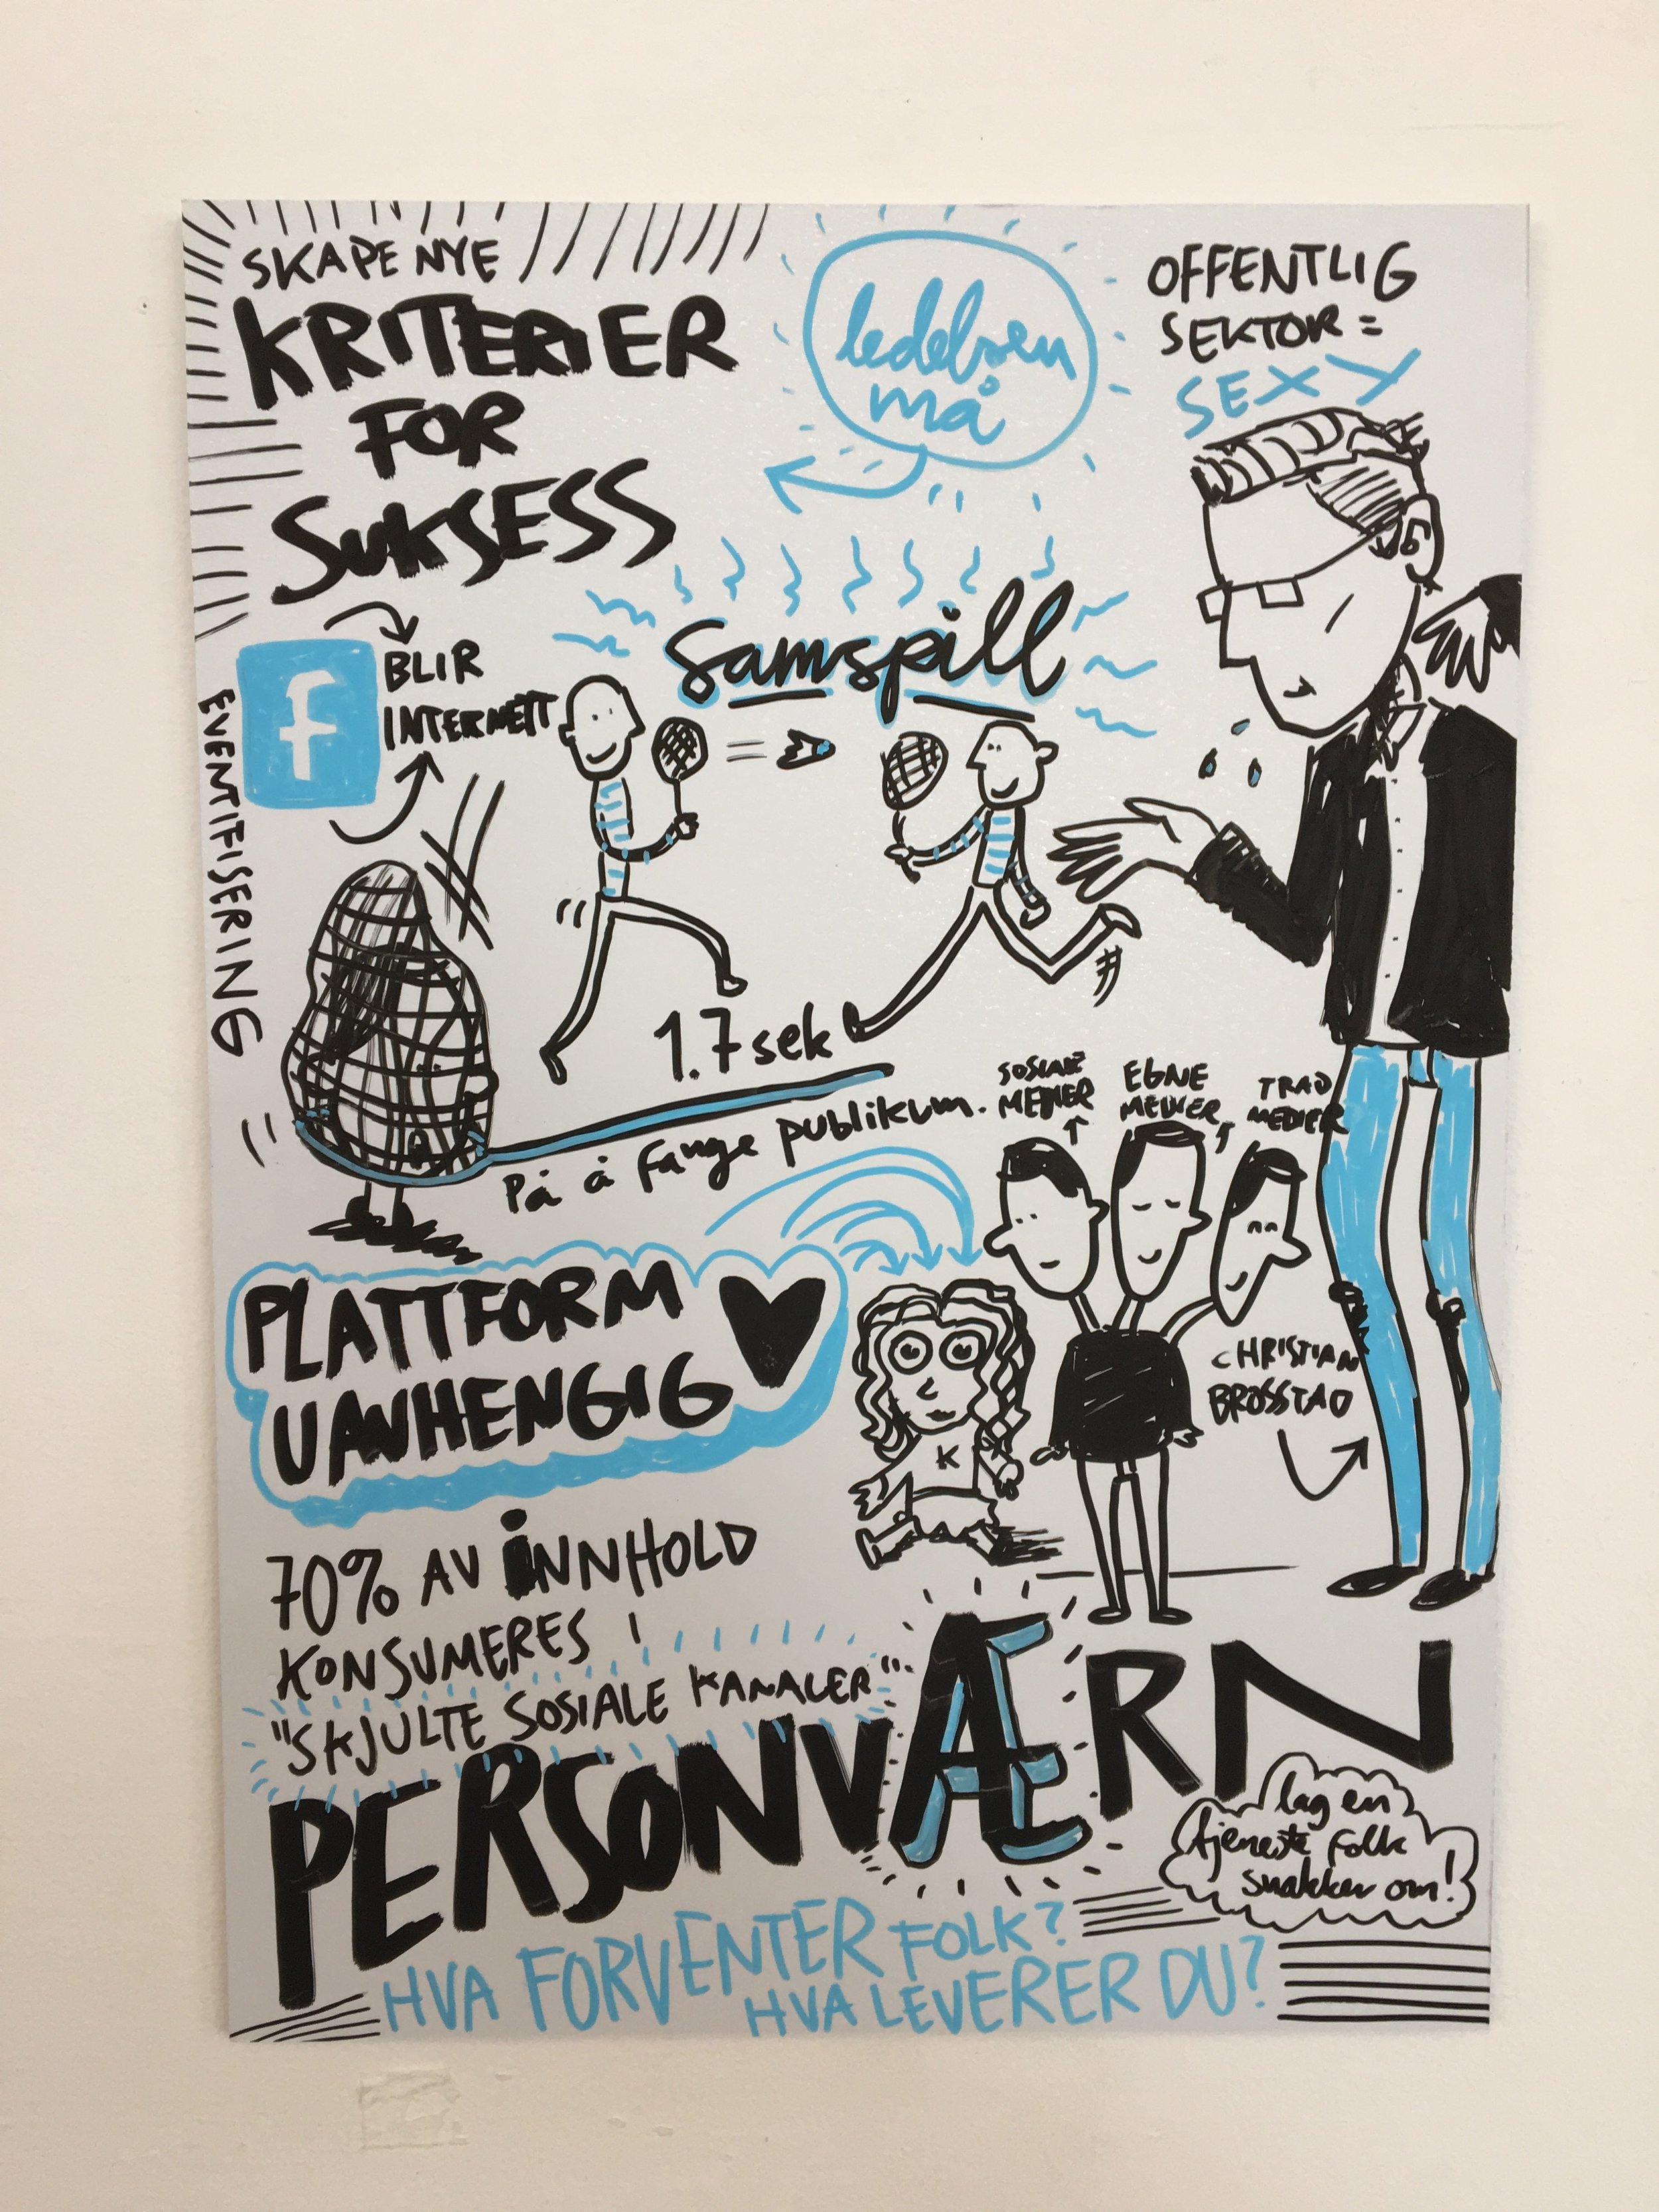 SKAPE NYE
KRITERIER
FOR
SUKSESS
ledelsen
må
OFFENTLIG
SEKTOR =
SEXY
f
BLIR
INTERNETT
EVENTIFISERING
Samspill
1.7 sek
På å fange publikum.
SOSIALE
MEDIER
EGNE
MEDIER
TRAD
MEDIER
PLATTFORM
UAVHENGIG
K
CHRISTIAN
BROSSTAD
70% AV INNHOLD
KONSUMERES I
"SKJULTE SOSIALE KANALER"
PERSONVÆRN
lag en
tjeneste folk
snakker om!
HVA FORVENTER FOLK?
HVA LEVERER DU?